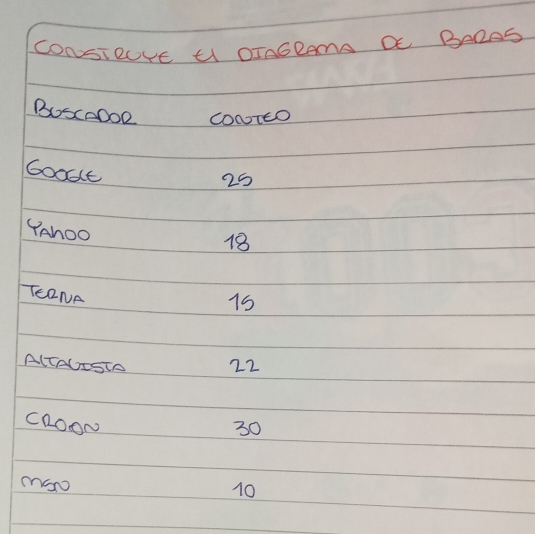 CONSTRUYE EL DIAGRAMA DE BARAS
BUSCADOR CONTEO
GOOGLE 25
YAHOO 18
TERNA 15
ALTAVISTA 22
CROON 30
MSN 10